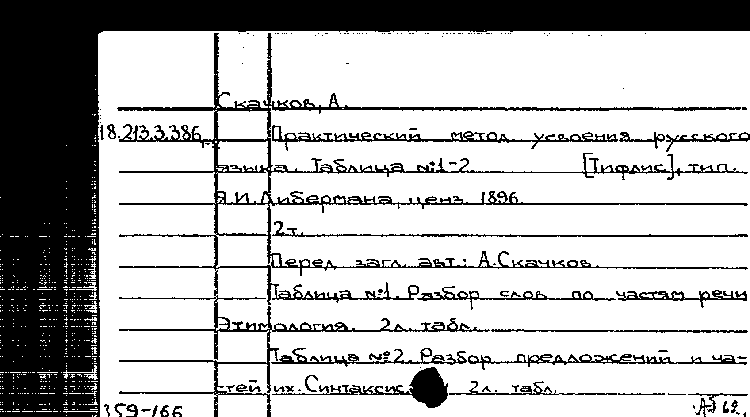 Скачков, А.
18.213.3.386 Практический метод усвоения русского
языка. Таблица №1-2. [Тифлис], тип.
Я.И.Либермана, ценз. 1896.
2т.
Перед загл. авт.: А.Скачков.
Таблица №1. Разбор слов по частям речи
Этимология. 2л. табл.
Таблица №2. Разбор предложений и ча-
стей их. Синтаксис. 2л. табл.
359-166